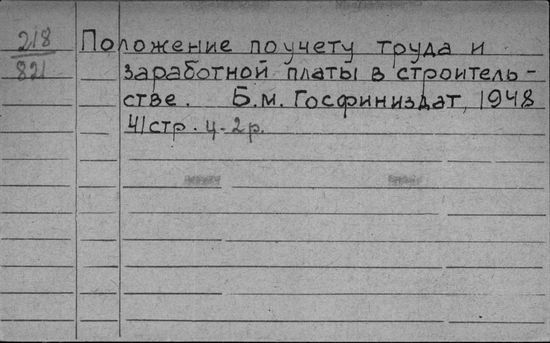 218
821
Положение по учету труда и
заработной платы в строитель-
стве. Б.м. Госфиниздат, 1948
41стр. ц-2р.